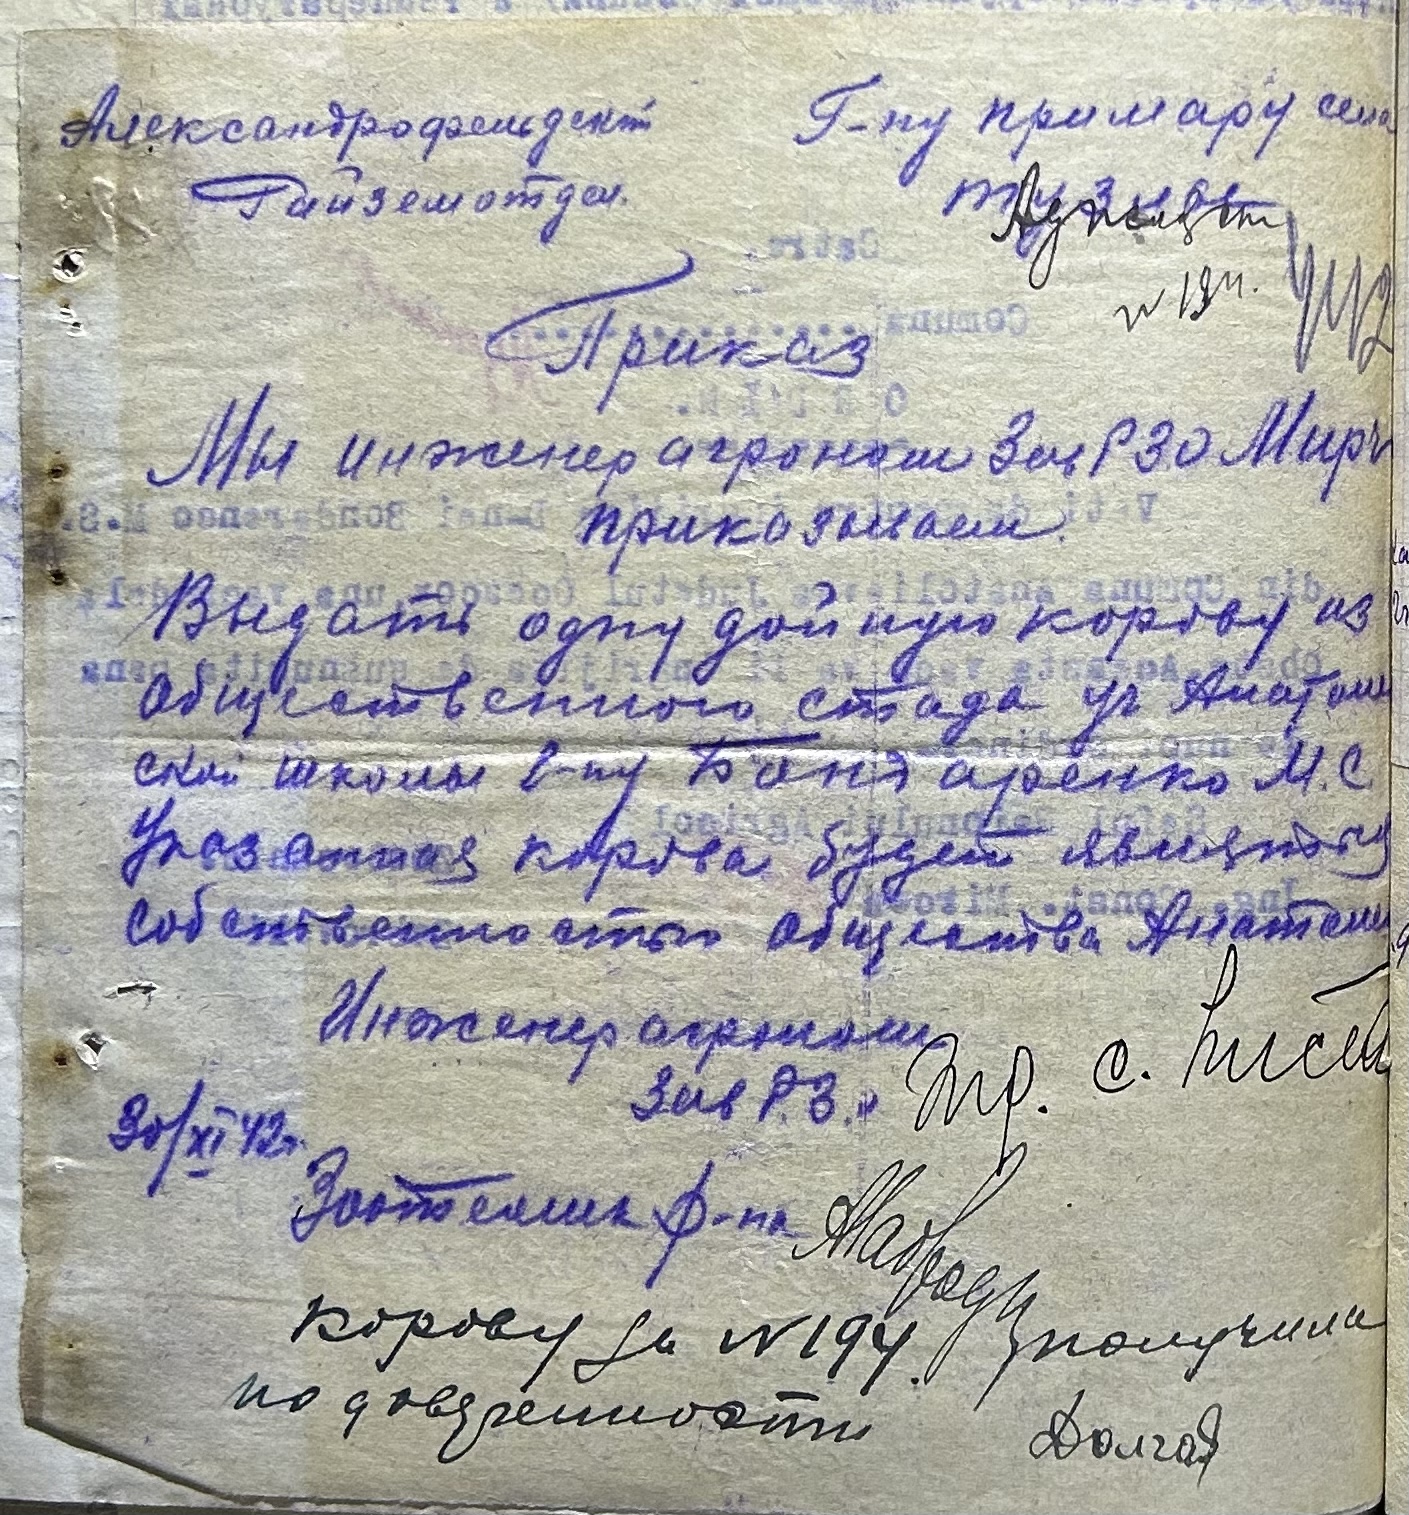 Александрофельдский
Райземотдел.
Г-ну примару села
Аджияск
№ 194.
Приказ
Мы инженер агроном Зав РЗО Мирч
приказываем.
Выдать одну дойную корову из
общественного стада уч Анатоли
ской школы г-ну Бондаренко М.С
Указанная корова будет являться
собственностью общества Анатоли
Инженер агроном
Зав Р.З.о
30/XI 42г.
Зоотехник р-на
корову за № 194. получила
по доверенности
Долгая